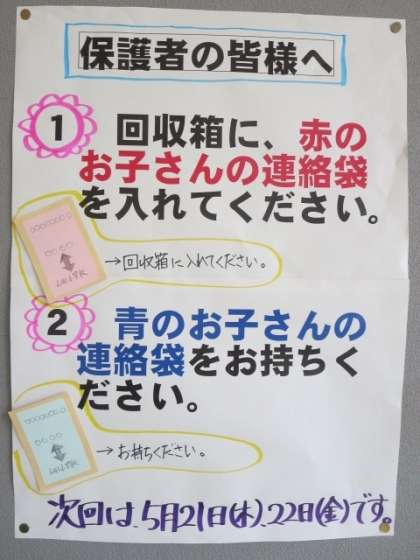 保護者の皆様へ
1 回収箱に、赤の
お子さんの連絡袋
を入れてください。
→回収箱に入れてください。
2 青のお子さんの
連絡袋をお持ちく
ださい。
→お持ちください。
次回は、5月21日(木)、22日(金)です。